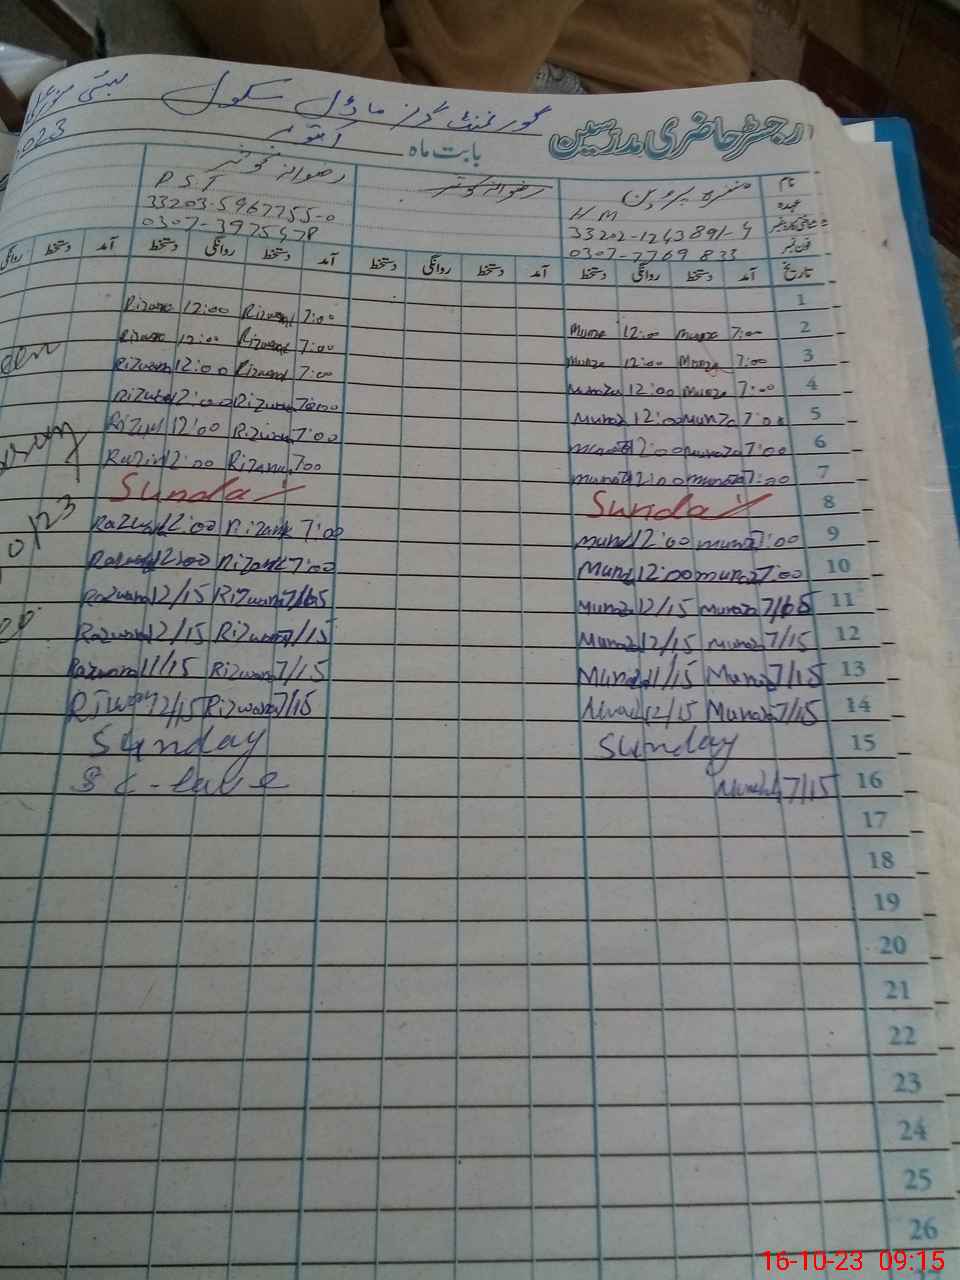 رجسٹر حاضری مدرسین گورنمنٹ گرلز ماڈل سکول بستی
بابت ماہ اکتوبر 023
نام منزہ پروین رضوانہ کوثر رضوانہ کوثر
عہدہ HM P.S.T
33202-1243891-4 33203-5967755-0
فون نمبر 0307-7769833 0307-3975478
تاریخ آمد دستخط روانگی دستخط آمد دستخط روانگی دستخط آمد دستخط روانگی دستخط آمد دستخط روانگی
1
Rizwana 12:00 Rizwana 7:00 Munza 12:00 Munza 7:00 2
12:00 Rizwana 7:00 Munza 12:00 Munza 7:00 3
Rizwana 12:00 Rizwana 7:00 Munza 12:00 Munza 7:00 4
Rizwana 12:00 Rizwana 7:00 Munza 12:00 Munza 7:00 5
Rizwa 12:00 Rizwan 7:00 12:00 Munaza 7:00 6
12:00 Rizana 700 munaza 12:00 munaza 7:00 7
Sunday Sunday 8
Razwan 12:00 Rizank 7:00 mund 12:00 munaz 7:00 9
Razwan 12:00 Rizank 7:00 Muna 12:00 munaz 7:00 10
Razwana 12/15 Rizwana Munaza 12/15 Munaza 11
Razwana 12/15 Rizwana 7/15 Munaza 12/15 Munaza 7/15 12
Razwana 11/15 Rizwana 7/15 Munaza 11/15 Munaza 7/15 13
Rizwan 12/15 Rizwana 7/15 12/15 Munaza 7/15 14
Sunday Sunday 15
7/15 16
17
18
19
20
21
22
23
24
25
26
16-10-23 09:15